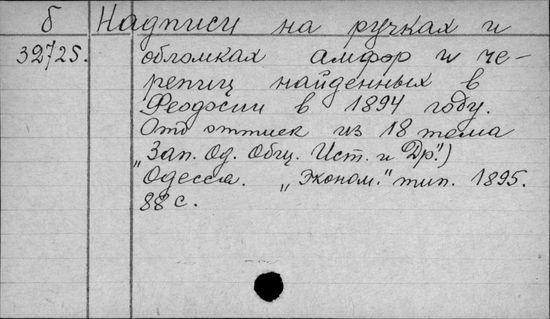 б Надписи на ручках и
32725. обломках амфор и че-
репиц найденных в
Феодосии в 1894 году.
Отд оттиск из 18 тома
„Зап. Од. Общ. Ист. и Др.")
Одесса. „Эконом." тип. 1895.
88 с.